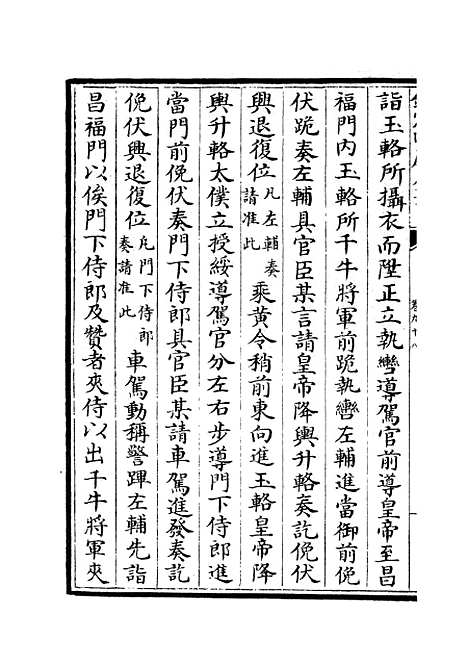 詣玉輅所攝衣而陞正立執轡導駕官前導皇帝至昌
福門内玉輅所千牛將軍前跪執轡左輔進當御前俛
伏跪奏左輔具官臣某言請皇帝降輿升輅奏訖俛伏
興退復位凡左輔奏請准此乘黄令稍前東向進玉輅皇帝降
輿升輅太僕立授綏導駕官分左右步導門下侍郎進
當門前俛伏奏門下侍郎具官臣某請車駕進發奏訖
俛伏興退復位凡門下侍郎奏請准此車駕動稱警蹕左輔先詣
昌福門以俟門下侍郎及贊者夾侍以出千牛將軍夾